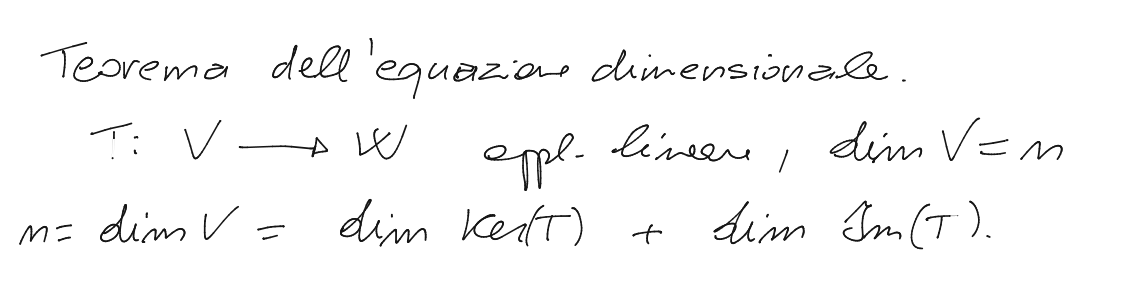 Teorema dell'equazione dimensionale.
T: V → W appl. lineare, dim V = n
n = dim V = dim Ker(T) + dim Im(T).